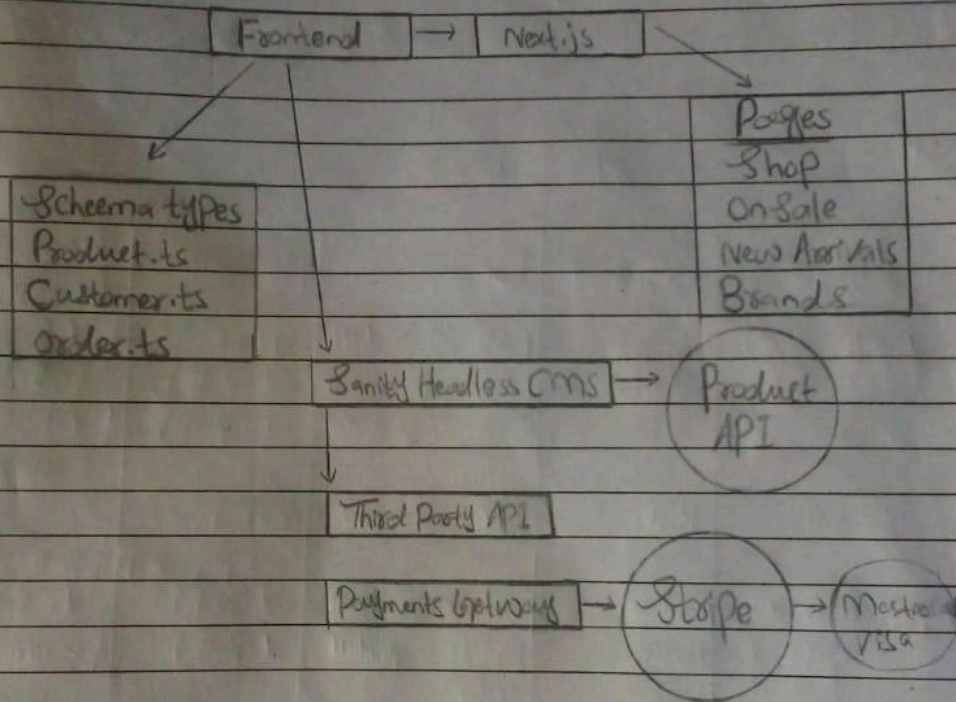 Frontend
Next.js
Pages
Shop
On Sale
New Arrivals
Brands
Scheema types
Product.ts
Customer.ts
order.ts
Sanity Headless CMS
Product
API
Third Party API
Payments Getways
Stripe
Visa